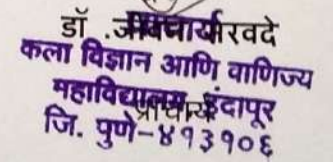 डॉ .जीवन सरवदे
प्राचार्य
कला विज्ञान आणि वाणिज्य
महाविद्यालय, इंदापूर
प्राचार्य
जि. पुणे-४१३१०६